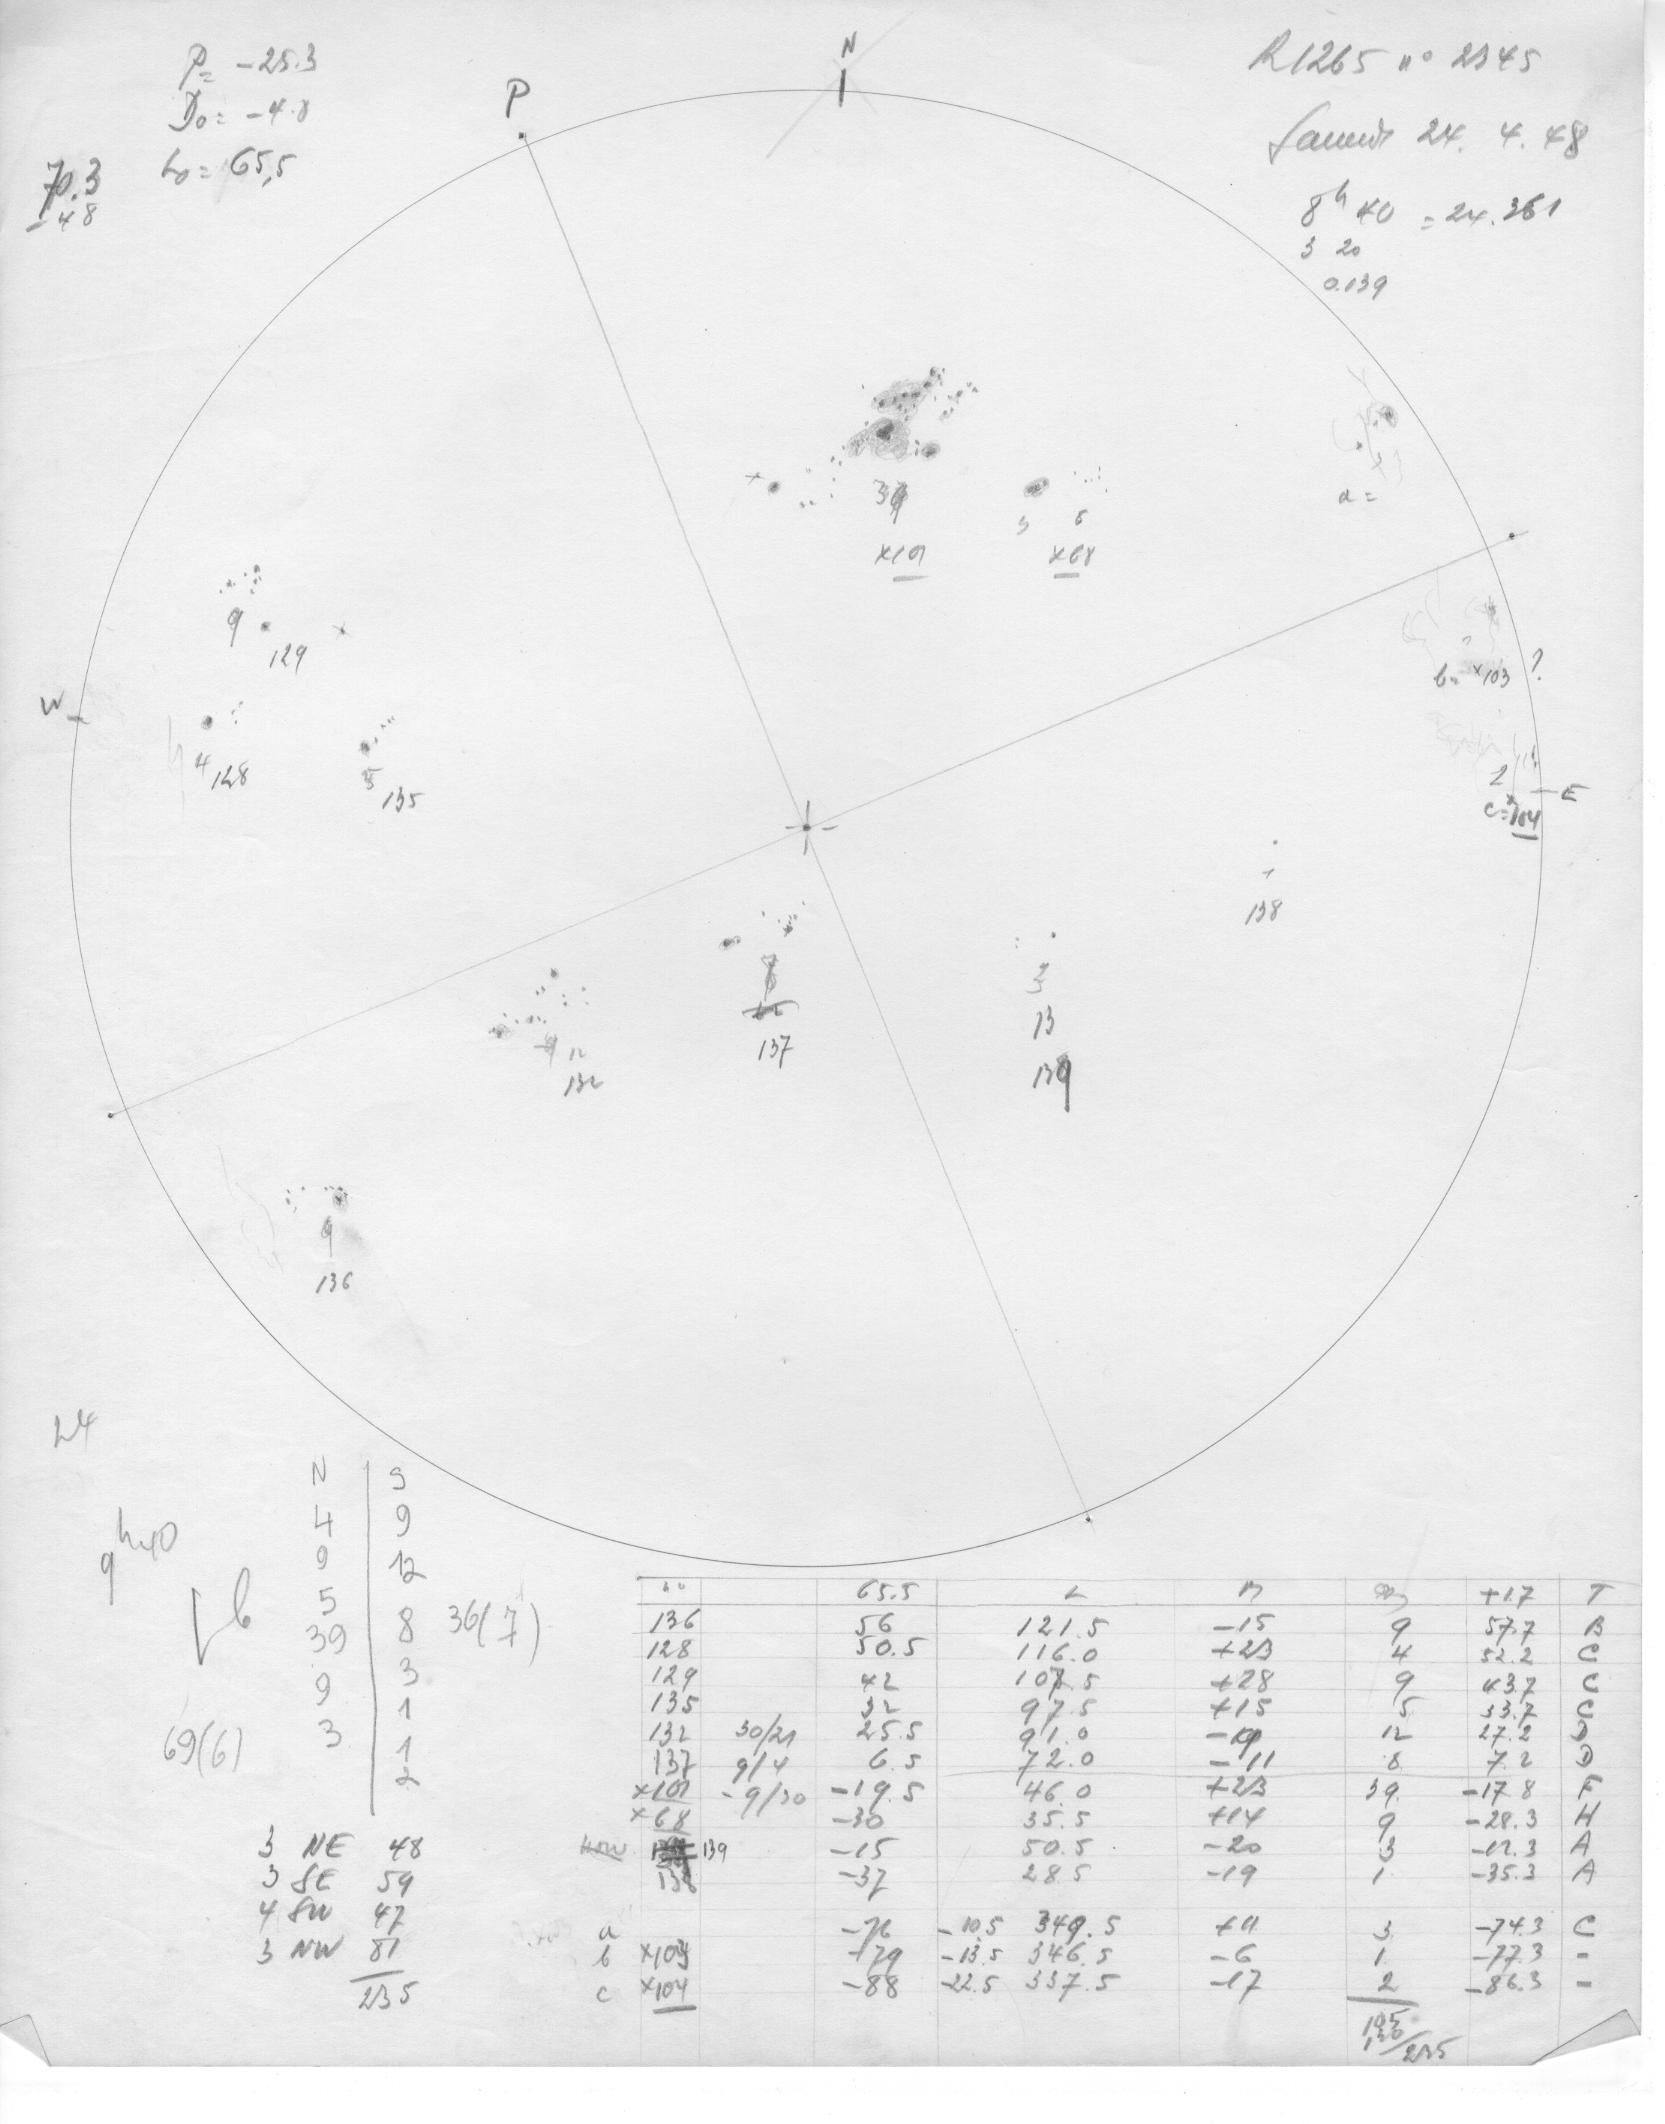 P= -25.3
D₀= -4.8
L₀= 65,5
70.3
-48
P
N
R1265 n° 2345
Samedi 24. 4. 48
8ʰ40 = 24.361
3 20
0.139
39
×101
5 6
×68
a =
9
129
W
4 128
5 135
b= ×103 ?
2
E
c= ×104
1
138
137
3
13
139
12
132
9
136
24
9ʰ40
b
N | S
4 | 9
9 | 12
5
39 | 8 36(7)
9 | 3
3 | 1
69(6)
1
2
3 NE 48
3 SE 59
4 SW 47
3 NW 81
235
n° 65.5 L B +1.7 T
136 56 121.5 -15 9 57.7 B
128 50.5 116.0 +23 4 52.2 C
129 42 107.5 +28 9 43.7 C
135 32 97.5 +15 5 33.7 C
132 30/21 25.5 91.0 12 27.2 D
137 9/4 6.5 72.0 -11 8 7.2 D
×101 -9/30 -19.5 46.0 +23 39 -17.8 F
×68 -30 35.5 +14 9 -28.3 H
139 -15 50.5 -20 3 A
138 -37 28.5 -19 1 -35.3 A
a -76 -10.5 349.5 +11 3 -74.3 C
b ×103 -79 -13.5 346.5 -6 1 -77.3 -
c ×104 -88 -22.5 337.5 -17 2 -86.3 -
105
130/235